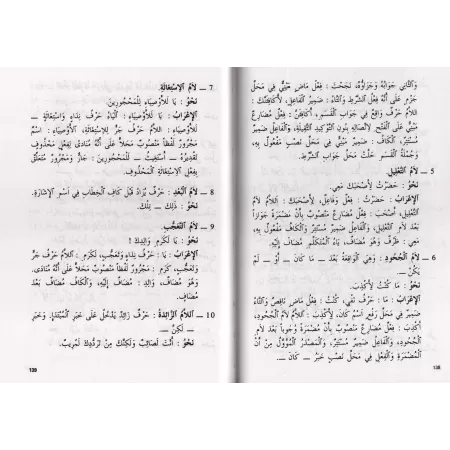 وَالثَّانِي جَوَابُهُ وَجَزَاؤُهُ، نَجَحْتَ : فِعْلٌ مَاضٍ مَبْنِيٌّ فِي مَحَلِّ
جَزْمٍ عَلَى أَنَّهُ فِعْلُ الشَّرْطِ وَالتَّاءُ : ضَمِيرُ الْفَاعِلِ، لَأُكَافِئَنَّكَ :
اللَّامُ حَرْفٌ وَاقِعٌ فِي جَوَابِ الْقَسَمِ، أُكَافِئَنَّ : فِعْلٌ مُضَارِعٌ
مَبْنِيٌّ عَلَى الْفَتْحِ لِاتِّصَالِهِ بِنُونِ التَّوْكِيدِ الثَّقِيلَةِ، وَالْفَاعِلُ : ضَمِيرٌ
مُسْتَتِرٌ، وَالْكَافُ : ضَمِيرٌ مُتَّصِلٌ فِي مَحَلِّ نَصْبِ مَفْعُولٍ بِهِ،
وَجُمْلَةُ الْقَسَمِ حَلَّتْ مَحَلَّ جَوَابِ الشَّرْطِ.
5 ـ لَامُ التَّعْلِيلِ.
نَحْوُ : حَضَرْتُ لِأَصْحَبَكَ مَعِي.
الْإِعْرَابُ : حَضَرْتُ : فِعْلٌ وَفَاعِلٌ، لِأَصْحَبَكَ : اللَّامُ لَامُ
التَّعْلِيلِ، أَصْحَبَ : فِعْلٌ مُضَارِعٌ مَنْصُوبٌ بِأَنْ مُضْمَرَةً جَوَازاً
بَعْدَ لَامِ التَّعْلِيلِ، وَالْفَاعِلُ ضَمِيرٌ مُسْتَتِرٌ، وَالْكَافُ مَفْعُولٌ بِهِ،
مَعِي : ظَرْفٌ وَهُوَ مُضَافٌ، يَاءُ الْمُتَكَلِّمِ مُضَافٌ إِلَيْهِ.
6 ـ لَامُ الْجُحُودِ : وَهِيَ الْوَاقِعَةُ بَعْدَ ـ مَا كَانَ ـ أَوْ ـ لَمْ
يَكُنْ ـ.
نَحْوُ : مَا كُنْتُ لِأَكْذِبَ.
الْإِعْرَابُ : مَا : حَرْفُ نَفْيٍ، كُنْتُ : فِعْلٌ مَاضٍ نَاقِصٌ وَالتَّاءُ
ضَمِيرٌ فِي مَحَلِّ رَفْعِ اسْمِ كَانَ، لِأَكْذِبَ : اللَّامُ لَامُ الْجُحُودِ،
أَكْذِبَ : فِعْلٌ مُضَارِعٌ مَنْصُوبٌ بِأَنْ مُضْمَرَةً وُجُوباً بَعْدَ لَامِ
الْجُحُودِ، وَالْفَاعِلُ ضَمِيرٌ مُسْتَتِرٌ، وَالْمَصْدَرُ الْمُؤَوَّلُ مِنْ أَنْ
الْمُضْمَرَةِ وَالْفِعْلِ فِي مَحَلِّ نَصْبِ خَبَرُ ـ كَانَ ـ.
138
7 ـ لَامُ الْاِسْتِغَاثَةِ.
نَحْوُ : يَا لَلْأَوْصِيَاءِ لِلْمَحْجُورِينَ.
الْإِعْرَابُ : يَا لَلْأَوْصِيَاءِ : الْيَاءُ حَرْفُ نِدَاءٍ وَاسْتِغَاثَةٍ ـ
لَلْأَوْصِيَاءِ : اللَّامُ حَرْفُ جَرٍّ لِلْاِسْتِغَاثَةِ، الْأَوْصِيَاءِ : اسْمٌ
مَجْرُورٌ لَفْظاً مَنْصُوبٌ مَحَلاً عَلَى أَنَّهُ مُنَادَى لِفِعْلٍ مَحْذُوفٍ
تَقْدِيرُهُ ـ أَسْتَغِيثُ ـ لِلْمَحْجُورِينَ : جَارٌّ وَمَجْرُورٌ مُتَعَلِّقٌ
بِفِعْلِ الْاِسْتِغَاثَةِ الْمَحْذُوفِ.
8 ـ لَامُ الْبُعْدِ : حَرْفٌ يُزَادُ قَبْلَ كَافِ الْخِطَابِ فِي اسْمِ الْإِشَارَةِ.
نَحْوُ : ذَلِكَ ـ تِلْكَ.
9 ـ لَامُ التَّعَجُّبِ.
نَحْوُ : يَا لَكَرَمِ وَالِدِكَ !
الْإِعْرَابُ : يَا : حَرْفُ نِدَاءٍ وَتَعَجُّبٍ، لَكَرَمِ : اللَّامُ حَرْفُ جَرٍّ
وَتَعَجُّبٍ، كَرَمِ : مَجْرُورٌ لَفْظاً مَنْصُوبٌ مَحَلاً عَلَى أَنَّهُ مُنَادَى،
وَهُوَ مُضَافٌ، وَالِدِ : مُضَافٌ إِلَيْهِ، وَالْكَافُ مُضَافٌ بَعْدَ
مُضَافٍ.
10 ـ اللَّامُ الزَّائِدَةُ : حَرْفٌ زَائِدٌ يَدْخُلُ عَلَى خَبَرِ الْمُبْتَدَإِ، وَخَبَرِ
ـ لَكِنَّ ـ.
نَحْوُ : أَنْتَ لَصَائِبٌ وَلَكِنَّكَ مِنْ تَرَدُّدِكَ لَمُرِيبٌ.
139